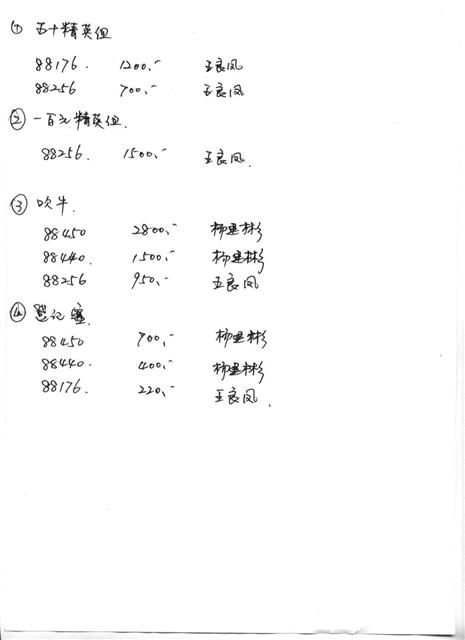 ① 五十精英组
88176. 1200.- 王良凤
88256 700.- 王良凤
② 一百元精英组.
88256. 1500.- 王良凤.
③ 吹牛.
88450 2800.- 柳建彬
88440. 1500.- 柳建彬
88256 950.- 王良凤
④ 登记赛.
88450 700.- 柳建彬
88440. 400.- 柳建彬
88176. 220.- 王良凤.